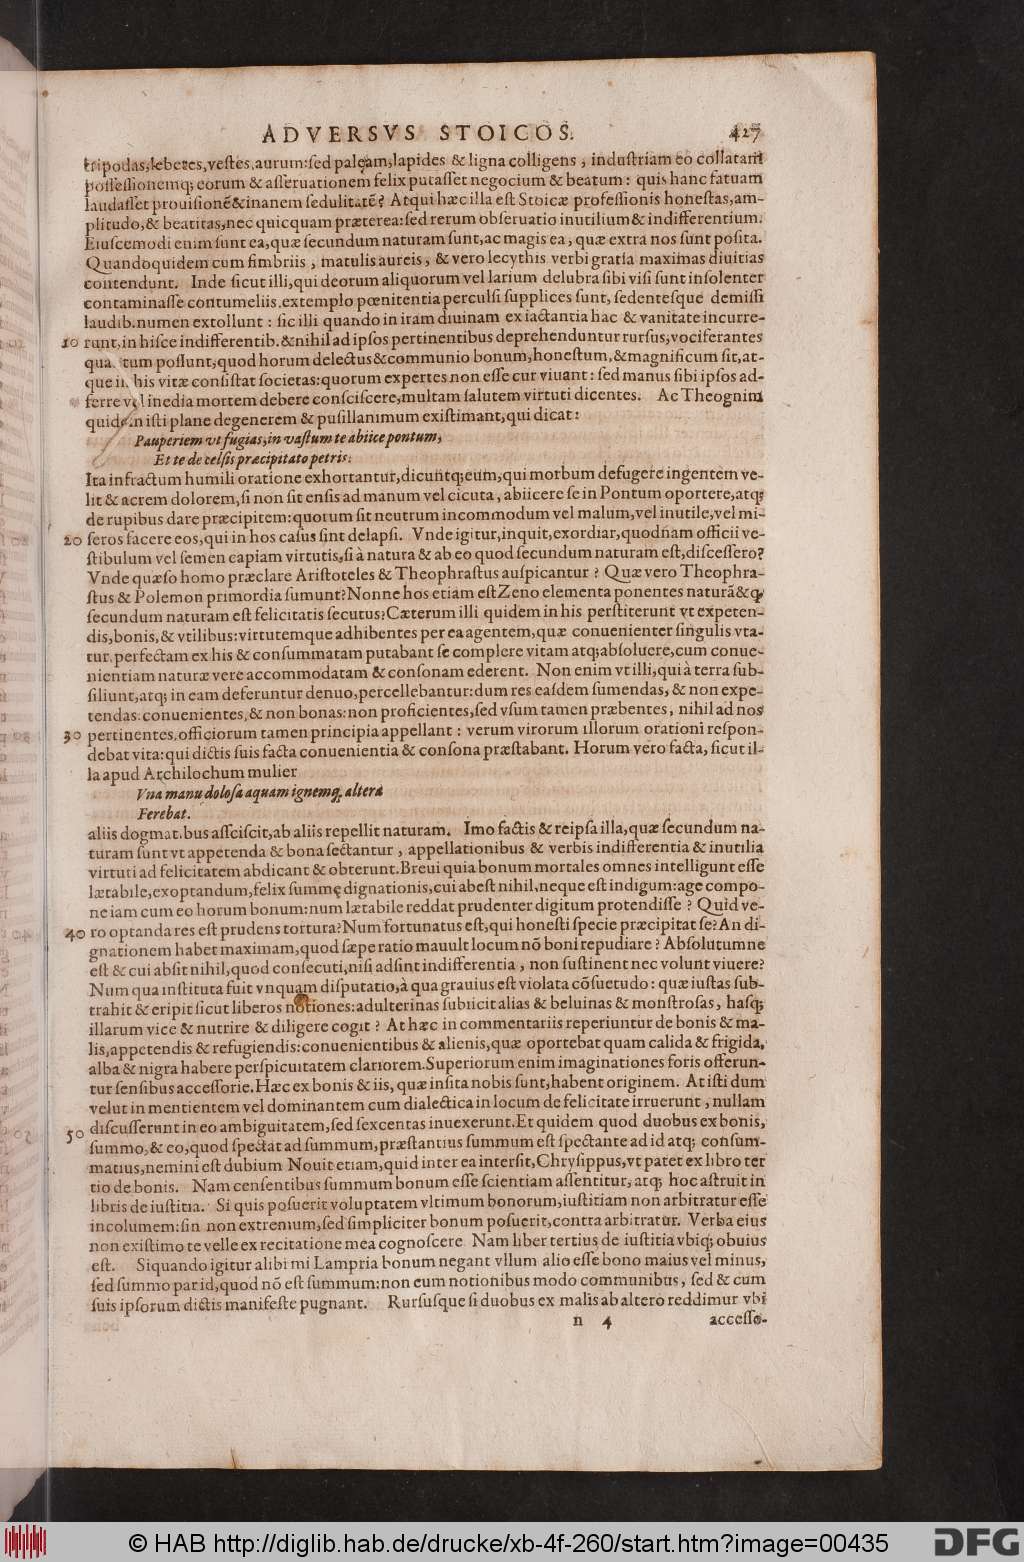 ADVERSVS STOICOS. 427
tripodas, lebetes, vestes, aurum: sed paleam, lapides & ligna colligens, industriam eo collatam
possessionemq; eorum & asseruationem felix putasset negocium & beatum: quis hanc fatuam
laudasset prouisionē & inanem sedulitatē? Atqui hæc illa est Stoicæ professionis honestas, am-
plitudo, & beatitas, nec quicquam præterea: sed rerum obseruatio inutilium & indifferentium.
Eiuscemodi enim sunt ea, quæ secundum naturam sunt, ac magis ea, quæ extra nos sunt posita.
Quandoquidem cum fimbriis, matulis aureis, & vero lecythis verbi gratia maximas diuitias
contendunt. Inde sicut illi, qui deorum aliquorum vel larium delubra sibi visi sunt insolenter
contaminasse contumeliis. extemplo pœnitentia perculsi supplices sunt, sedentesque demissi
laudib. numen extollunt: sic illi quando in iram diuinam ex iactantia hac & vanitate incurre-
10 runt, in hisce indifferentib. & nihil ad ipsos pertinentibus deprehenduntur rursus, vociferantes
qua. tum possunt, quod horum delectus & communio bonum, honestum, & magnificum sit, at-
que in his vitæ consistat societas: quorum expertes non esse cur viuant: sed manus sibi ipsos ad-
ferre vel inedia mortem debere consciscere, multam salutem virtuti dicentes. Ac Theognim
quidem isti plane degenerem & pusillanimum existimant, qui dicat:
Pauperiem vt fugias, in vastum te abiice pontum,
Et te de celsis præcipitato petris.
Ita infractum humili oratione exhortantur, dicuntq; eum, qui morbum defugere ingentem ve-
lit & acrem dolorem, si non sit ensis ad manum vel cicuta, abiicere se in Pontum oportere, atq;
de rupibus dare præcipitem: quorum sit neutrum incommodum vel malum, vel inutile, vel mi-
20 seros facere eos, qui in hos casus sint delapsi. Vnde igitur, inquit, exordiar, quodnam officii ve-
stibulum vel semen capiam virtutis, si à natura & ab eo quod secundum naturam est, discessero?
Vnde quæso homo præclare Aristoteles & Theophrastus auspicantur? Quæ vero Theophra-
stus & Polemon primordia sumunt? Nonne hos etiam est Zeno elementa ponentes naturā & q;
secundum naturam est felicitatis secutus? Cæterum illi quidem in his perstiterunt vt expeten-
dis, bonis, & vtilibus: virtutemque adhibentes per ea agentem, quæ conuenienter singulis vta-
tur, perfectam ex his & consummatam putabant se complere vitam atq; absoluere, cum conue-
nientiam naturæ vere accommodatam & consonam ederent. Non enim vt illi, qui à terra sub-
siliunt, atq; in eam deferuntur denuo, percellebantur: dum res easdem sumendas, & non expe-
tendas: conuenientes, & non bonas: non proficientes, sed vsum tamen præbentes, nihil ad nos
30 pertinentes, officiorum tamen principia appellant: verum virorum illorum orationi respon-
debat vita: qui dictis suis facta conuenientia & consona præstabant. Horum vero facta, sicut il-
la apud Archilochum mulier
Vna manu dolosa aquam ignemq; altera
Ferebat.
aliis dogmat. bus assciscit, ab aliis repellit naturam. Imo factis & reipsa illa, quæ secundum na-
turam sunt vt appetenda & bona sectantur, appellationibus & verbis indifferentia & inutilia
virtuti ad felicitatem abdicant & obterunt. Breui quia bonum mortales omnes intelligunt esse
lætabile, exoptandum, felix summę dignationis, cui abest nihil, neque est indigum: age compo-
ne iam cum eo horum bonum: num lætabile reddat prudenter digitum protendisse? Quid ve-
40 ro optanda res est prudens tortura? Num fortunatus est, qui honesti specie præcipitat se? An di-
gnationem habet maximam, quod sæpe ratio mauult locum nō boni repudiare? Absolutumne
est & cui absit nihil, quod consecuti, nisi adsint indifferentia, non sustinent nec volunt viuere?
Num qua instituta fuit vnquam disputatio, à qua grauius est violata cōsuetudo: quæ iustas sub-
trahit & eripit sicut liberos notiones: adulterinas subiicit alias & beluinas & monstrosas, hasq;
illarum vice & nutrire & diligere cogit? At hæc in commentariis reperiuntur de bonis & ma-
lis, appetendis & refugiendis: conuenientibus & alienis, quæ oportebat quam calida & frigida,
alba & nigra habere perspicuitatem clariorem. Superiorum enim imaginationes foris offerun-
tur sensibus accessorie. Hæc ex bonis & iis, quæ insita nobis sunt, habent originem. At isti dum
velut in mentientem vel dominantem cum dialectica in locum de felicitate irruerunt, nullam
50 discusserunt in eo ambiguitatem, sed sexcentas inuexerunt. Et quidem quod duobus ex bonis,
summo, & eo, quod spectat ad summum, præstantius summum est spectante ad id atq; consum-
matius, nemini est dubium Nouit etiam, quid inter ea intersit, Chrysippus, vt patet ex libro ter
tio de bonis. Nam censentibus summum bonum esse scientiam assentitur, atq; hoc astruit in
libris de iustitia. Si quis posuerit voluptatem vltimum bonorum, iustitiam non arbitratur esse
incolumem: sin non extremum, sed simpliciter bonum posuerit, contra arbitratur. Verba eius
non existimo te velle ex recitatione mea cognoscere Nam liber tertius de iustitia vbiq; obuius
est. Siquando igitur alibi mi Lampria bonum negant vllum alio esse bono maius vel minus,
sed summo par id, quod nō est summum: non cum notionibus modo communibus, sed & cum
suis ipsorum dictis manifeste pugnant. Rursusque si duobus ex malis ab altero reddimur vbi
n 4 accesso-
© HAB http://diglib.hab.de/drucke/xb-4f-260/start.htm?image=00435 DFG